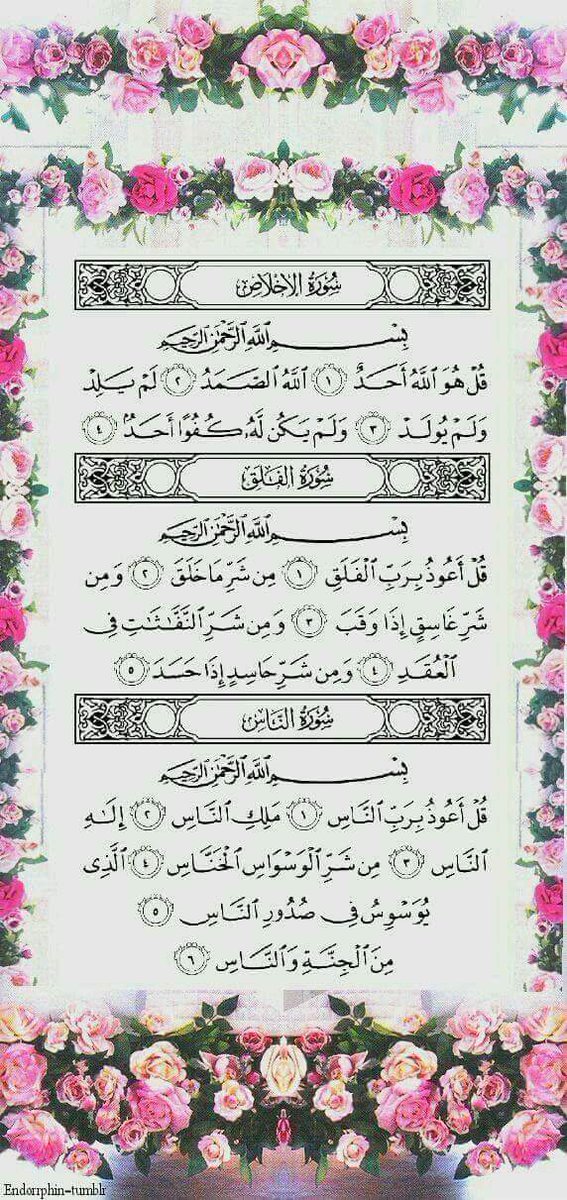 سُورَةُ الإِخْلَاصِ
بِسْمِ ٱللَّهِ ٱلرَّحْمَٰنِ ٱلرَّحِيمِ
قُلْ هُوَ ٱللَّهُ أَحَدٌ ١ ٱللَّهُ ٱلصَّمَدُ ٢ لَمْ يَلِدْ
وَلَمْ يُولَدْ ٣ وَلَمْ يَكُن لَّهُۥ كُفُوًا أَحَدٌۢ ٤
سُورَةُ الفَلَقِ
بِسْمِ ٱللَّهِ ٱلرَّحْمَٰنِ ٱلرَّحِيمِ
قُلْ أَعُوذُ بِرَبِّ ٱلْفَلَقِ ١ مِن شَرِّ مَا خَلَقَ ٢ وَمِن
شَرِّ غَاسِقٍ إِذَا وَقَبَ ٣ وَمِن شَرِّ ٱلنَّفَّٰثَٰتِ فِى
ٱلْعُقَدِ ٤ وَمِن شَرِّ حَاسِدٍ إِذَا حَسَدَ ٥
سُورَةُ النَّاسِ
بِسْمِ ٱللَّهِ ٱلرَّحْمَٰنِ ٱلرَّحِيمِ
قُلْ أَعُوذُ بِرَبِّ ٱلنَّاسِ ١ مَلِكِ ٱلنَّاسِ ٢ إِلَٰهِ
ٱلنَّاسِ ٣ مِن شَرِّ ٱلْوَسْوَاسِ ٱلْخَنَّاسِ ٤ ٱلَّذِى
يُوَسْوِسُ فِى صُدُورِ ٱلنَّاسِ ٥
مِنَ ٱلْجِنَّةِ وَٱلنَّاسِ ٦
Endorrphin-tumblr